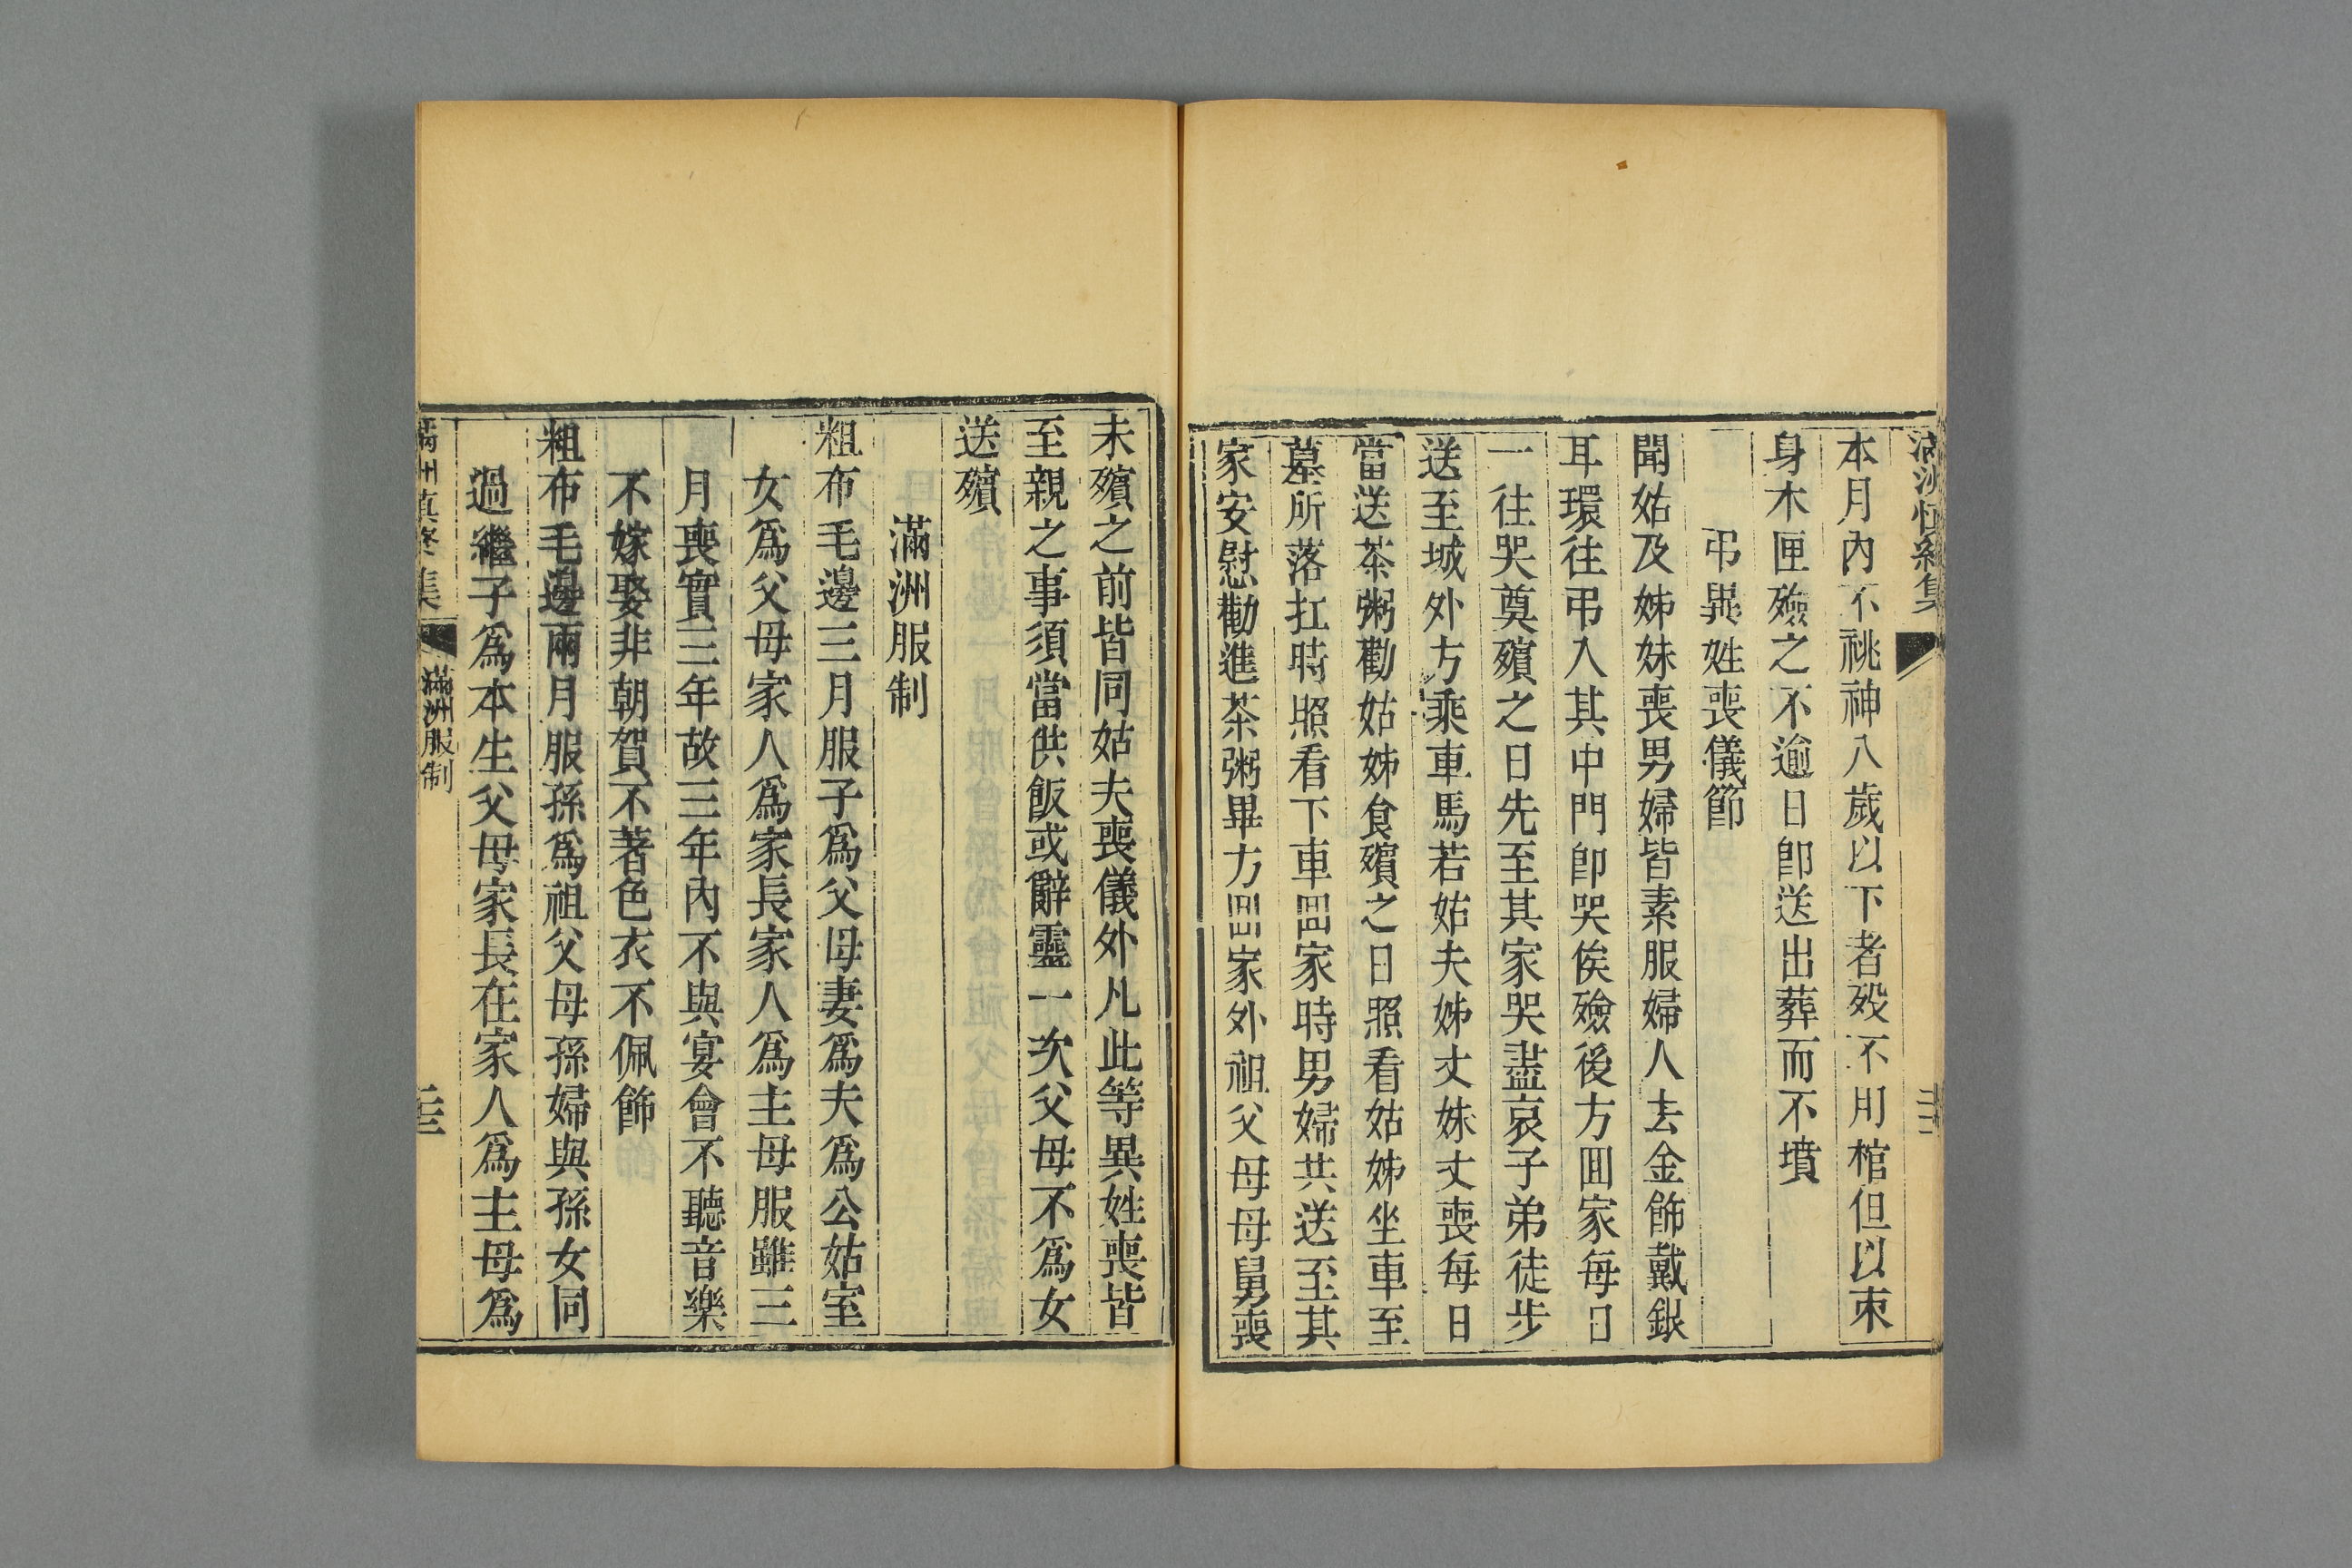 本月內不祧神八歲以下者殁不用棺但以朿
身木匣殮之不逾日卽送出葬而不墳
弔異姓喪儀節
聞姑及姊妹喪男婦皆素服婦人去金飾戴銀
耳環往弔入其中門卽哭俟殮後方囬家每日
一往哭奠殯之日先至其家哭盡哀子弟徒步
送至城外方乘車馬若姑夫姊丈妹丈喪每日
當送茶粥勸姑姊食殯之日照看姑姊坐車至
墓所落扛時照看下車囬家時男婦共送至其
家安慰勸進茶粥畢方囬家外祖父母母舅喪
未殯之前皆同姑夫喪儀外凡此等異姓喪皆
至親之事須當供飯或辭靈一次父母不爲女
送殯
滿洲服制
粗布毛邊三月服子爲父母妻爲夫爲公姑室
女爲父母家人爲家長家人爲主母服雖三
月喪實三年故三年內不與宴會不聽音樂
不嫁娶非朝賀不著色衣不佩飾
粗布毛邊兩月服孫爲祖父母孫婦與孫女同
過繼子爲本生父母家長在家人爲主母爲
滿洲服制